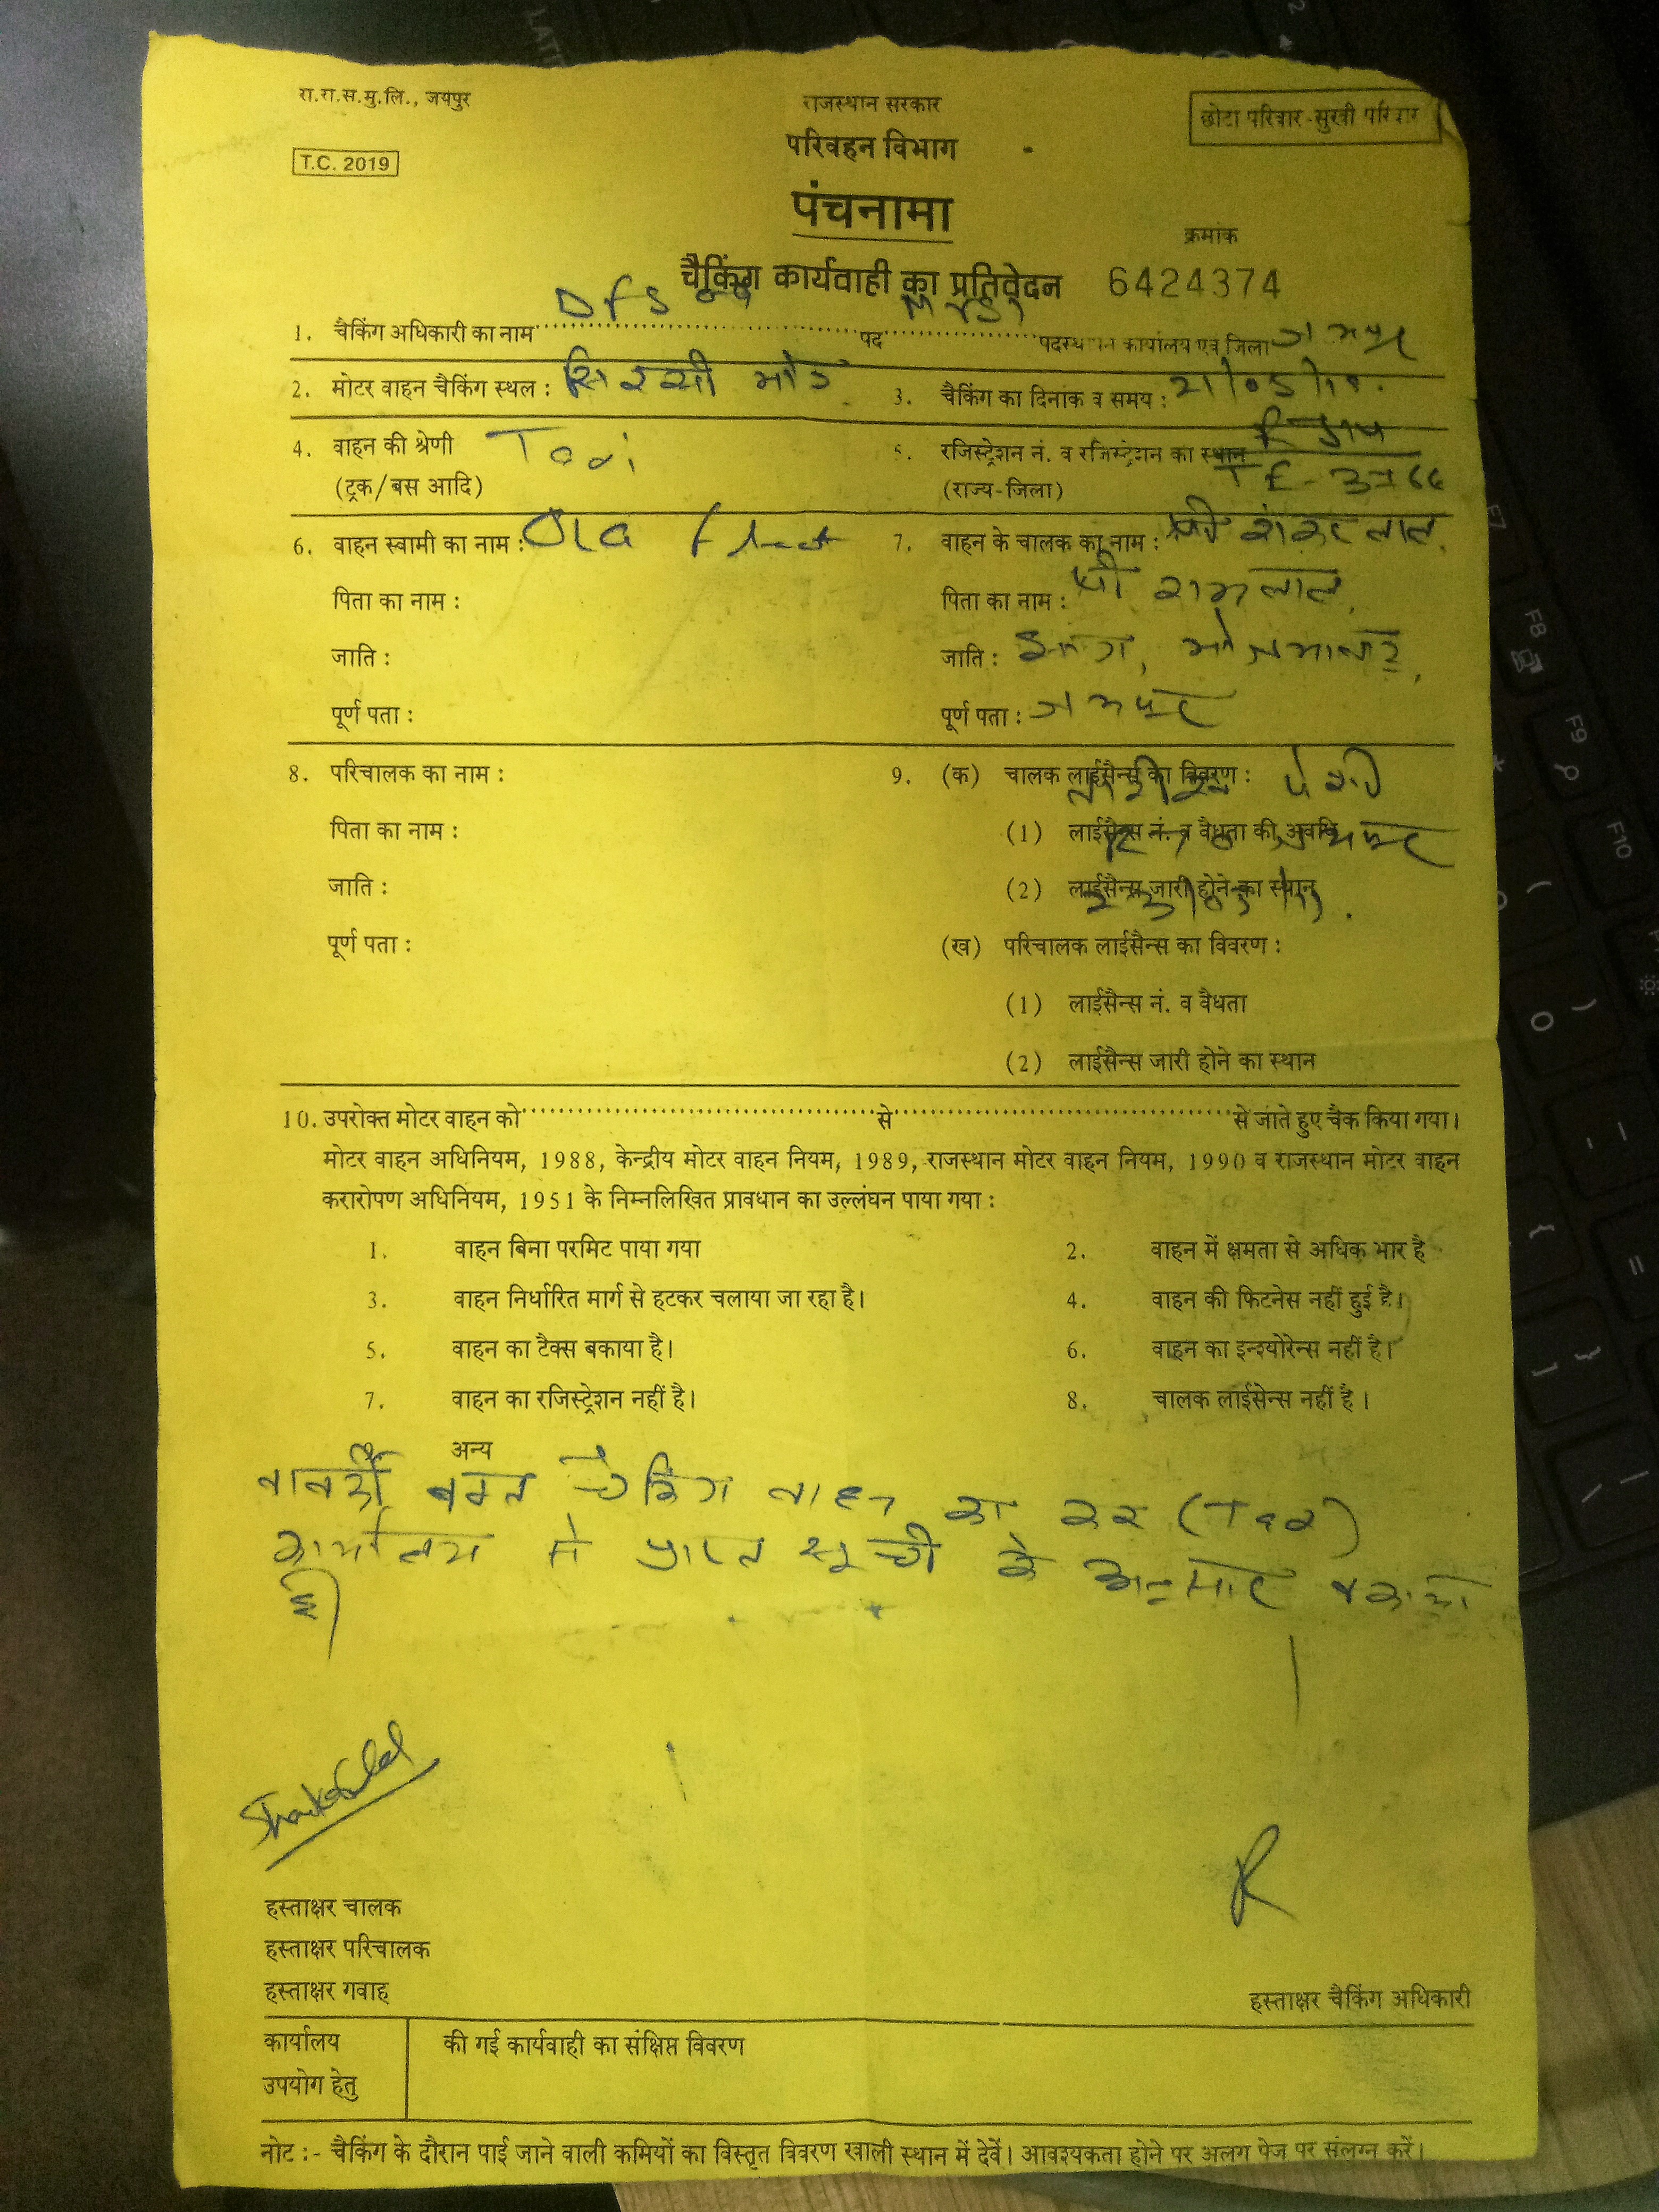 रा.रा.स.मु.लि., जयपुर
राजस्थान सरकार
छोटा परिवार-सुखी परिवार
परिवहन विभाग
T.C. 2019
पंचनामा
क्रमांक
चैकिंग कार्यवाही का प्रतिवेदन 6424374
1. चैकिंग अधिकारी का नाम पद पदस्थापन कार्यालय एवं जिला जयपुर
2. मोटर वाहन चैकिंग स्थल : सिरसी मोड
3. चैकिंग का दिनांक व समय :
4. वाहन की श्रेणी Taxi
(ट्रक/बस आदि)
5. रजिस्ट्रेशन नं. व रजिस्ट्रेशन का स्थान RJ14
(राज्य-जिला)
6. वाहन स्वामी का नाम : Ola Fleet
7. वाहन के चालक का नाम : श्री शंकर लाल
पिता का नाम :
पिता का नाम : श्री रामलाल
जाति :
जाति :
पूर्ण पता :
पूर्ण पता : जयपुर
8. परिचालक का नाम :
9. (क) चालक लाईसैन्स का विवरण :
पिता का नाम :
(1) लाईसैन्स नं. व वैधता की अवधि
जाति :
(2) लाईसैन्स जारी होने का स्थान
पूर्ण पता :
(ख) परिचालक लाईसैन्स का विवरण :
(1) लाईसैन्स नं. व वैधता
(2) लाईसैन्स जारी होने का स्थान
10. उपरोक्त मोटर वाहन को से से जाते हुए चैक किया गया।
मोटर वाहन अधिनियम, 1988, केन्द्रीय मोटर वाहन नियम, 1989, राजस्थान मोटर वाहन नियम, 1990 व राजस्थान मोटर वाहन
करारोपण अधिनियम, 1951 के निम्नलिखित प्रावधान का उल्लंघन पाया गया :
1. वाहन बिना परमिट पाया गया
2. वाहन में क्षमता से अधिक भार है
3. वाहन निर्धारित मार्ग से हटकर चलाया जा रहा है।
4. वाहन की फिटनेस नहीं हुई है।
5. वाहन का टैक्स बकाया है।
6. वाहन का इन्श्योरेन्स नहीं है।
7. वाहन का रजिस्ट्रेशन नहीं है।
8. चालक लाईसेन्स नहीं है।
अन्य
वक्त चेकिंग वाहन का कर (Tax)
कार्यालय से प्राप्त सूची के अनुसार बकाया
है।
हस्ताक्षर चालक
हस्ताक्षर परिचालक
हस्ताक्षर गवाह
हस्ताक्षर चैकिंग अधिकारी
कार्यालय
उपयोग हेतु
की गई कार्यवाही का संक्षिप्त विवरण
नोट :- चैकिंग के दौरान पाई जाने वाली कमियों का विस्तृत विवरण खाली स्थान में देवें। आवश्यकता होने पर अलग पेज पर संलग्न करें।